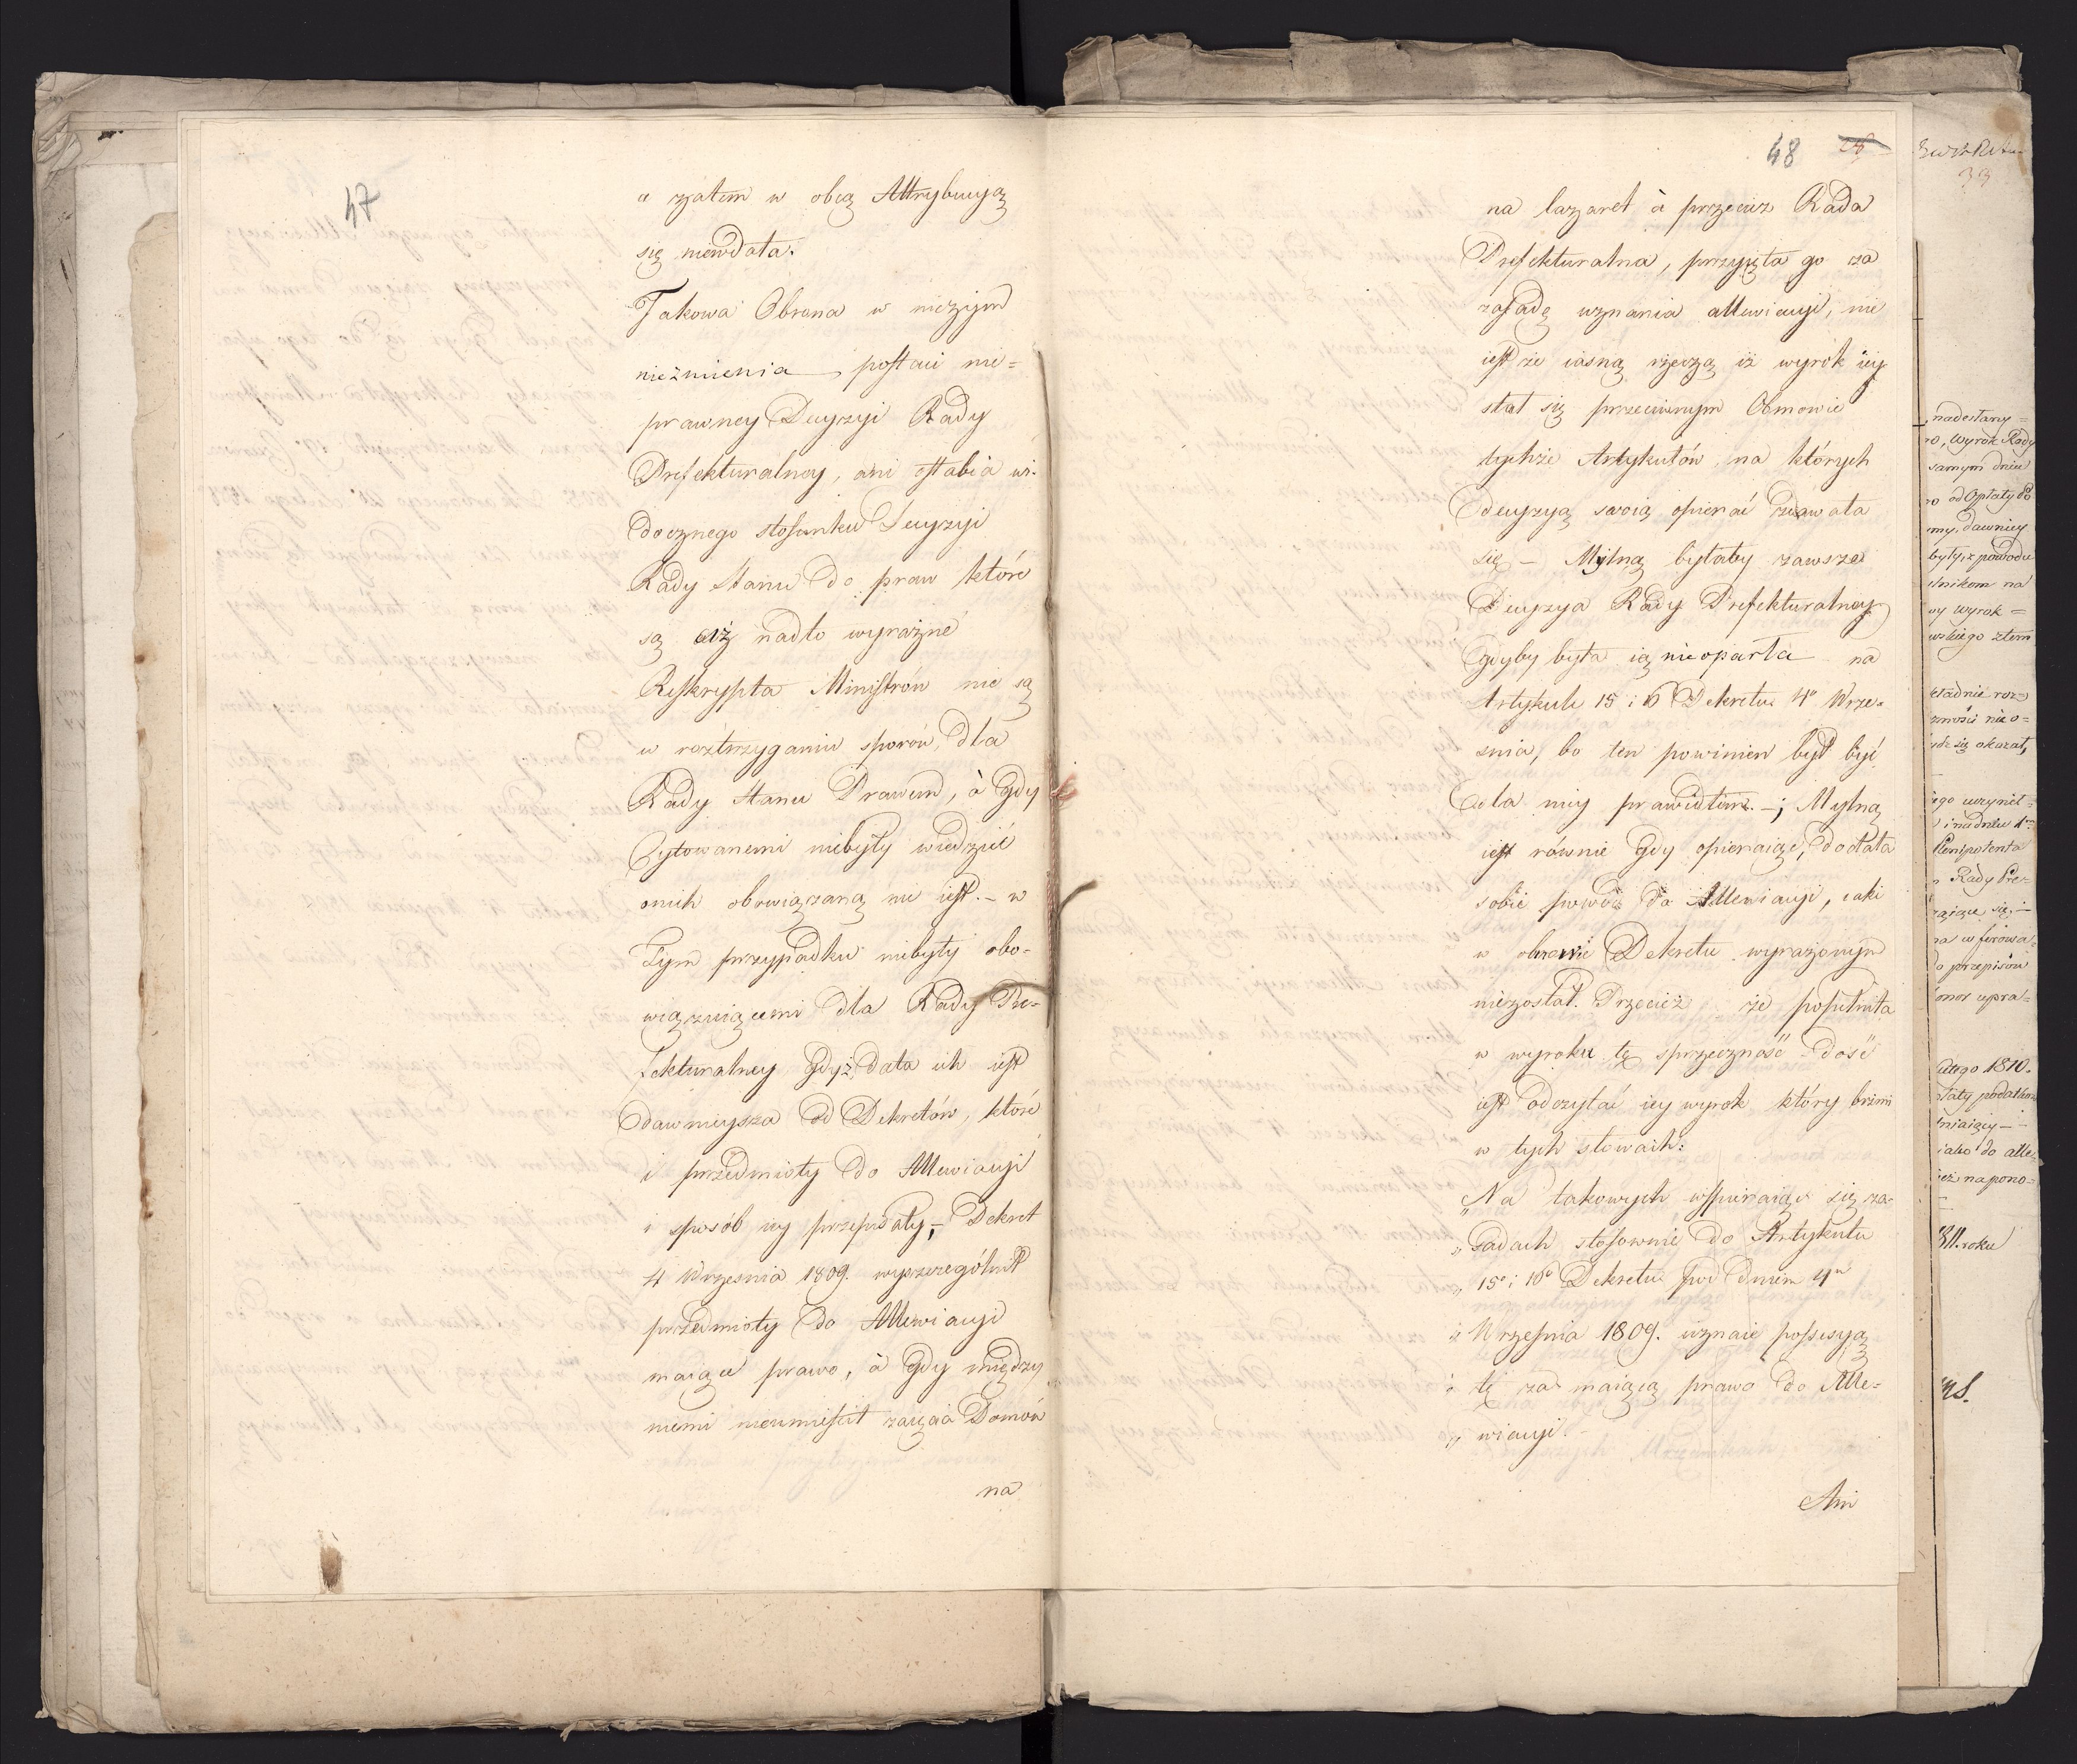 47
a zatem w obcą Attrybucyą
się niewdała.
Takowa Obrona w niczym
niezmienia postaci nie=
prawney Decyzyi Rady
Prefekturalney, ani osłabia wi=
docznego stosunku Decyzyi
Rady Stanu do praw które
są aż nadto wyraźne
Reskrypta Ministrów nie są
w roztrzyganiu sporów, dla
Rady Stanu Prawem, à gdy
Cytowanemi niebyły wiedzieć
onich obowiązaną nie iest. – w
Tym przypadku niebyły obo=
wiązuiącemi dla Rady Pre=
fekturalney gdyż data ich iest
dawnieysza od Dekretów, które
i przedmioty do Allewiacyi
i sposób iey przepisały, – Dekret
4 Września 1809. wyszczególnił
przedmioty do Allewiacyi
maiące prawo, à gdy między
niemi nieumieścił zaięcia Domów
na
48
na lazaret à przecież Rada
Prefekturalna, przyięła go za
zasadę uznania allewiacyi, nie
iest że iasną rzeczą iż wyrok iey
stał się przeciwnym Osnowie
tychże Artykułów, na których
decyzyą swoią opierać zdawała
się – Mylną byłaby zawsze
Decyzya Rady Prefekturalney
gdyby była ią nieoparła na
Artykule 15 i 16 Dekretu 4° Wrze=
śnia, bo ten powinien był być
dla niey prawidłem. –; Mylną
iest równie gdy opieraiąc, dodała
sobie powód do Allewiacyi, iaki
w obrębie Dekretu wyrażonym
niezostał. Przecież że popełniła
w wyroku tę sprzeczność – dość
iest odczytać iey wyrok który brzmi
w tych słowach:
„Na takowych wspieraiąc się za=
„sadach stosownie do Artykułu
„15° i 16° Dekretu pod dniem 4m
„Września 1809. uznaie possesyą
„tę za maiącą prawo do Alle=
„wiacyi. –
Ani
nadesłany =
wyrok Rady
samym dniu
od Opłaty Po
dawniey
były, z powodu
wyrok =
okazał,
i na dniu
Plenipotenta
Rady Pre=
przepisów
Lutego 1810.
do alle=
na pono=
1811. roku